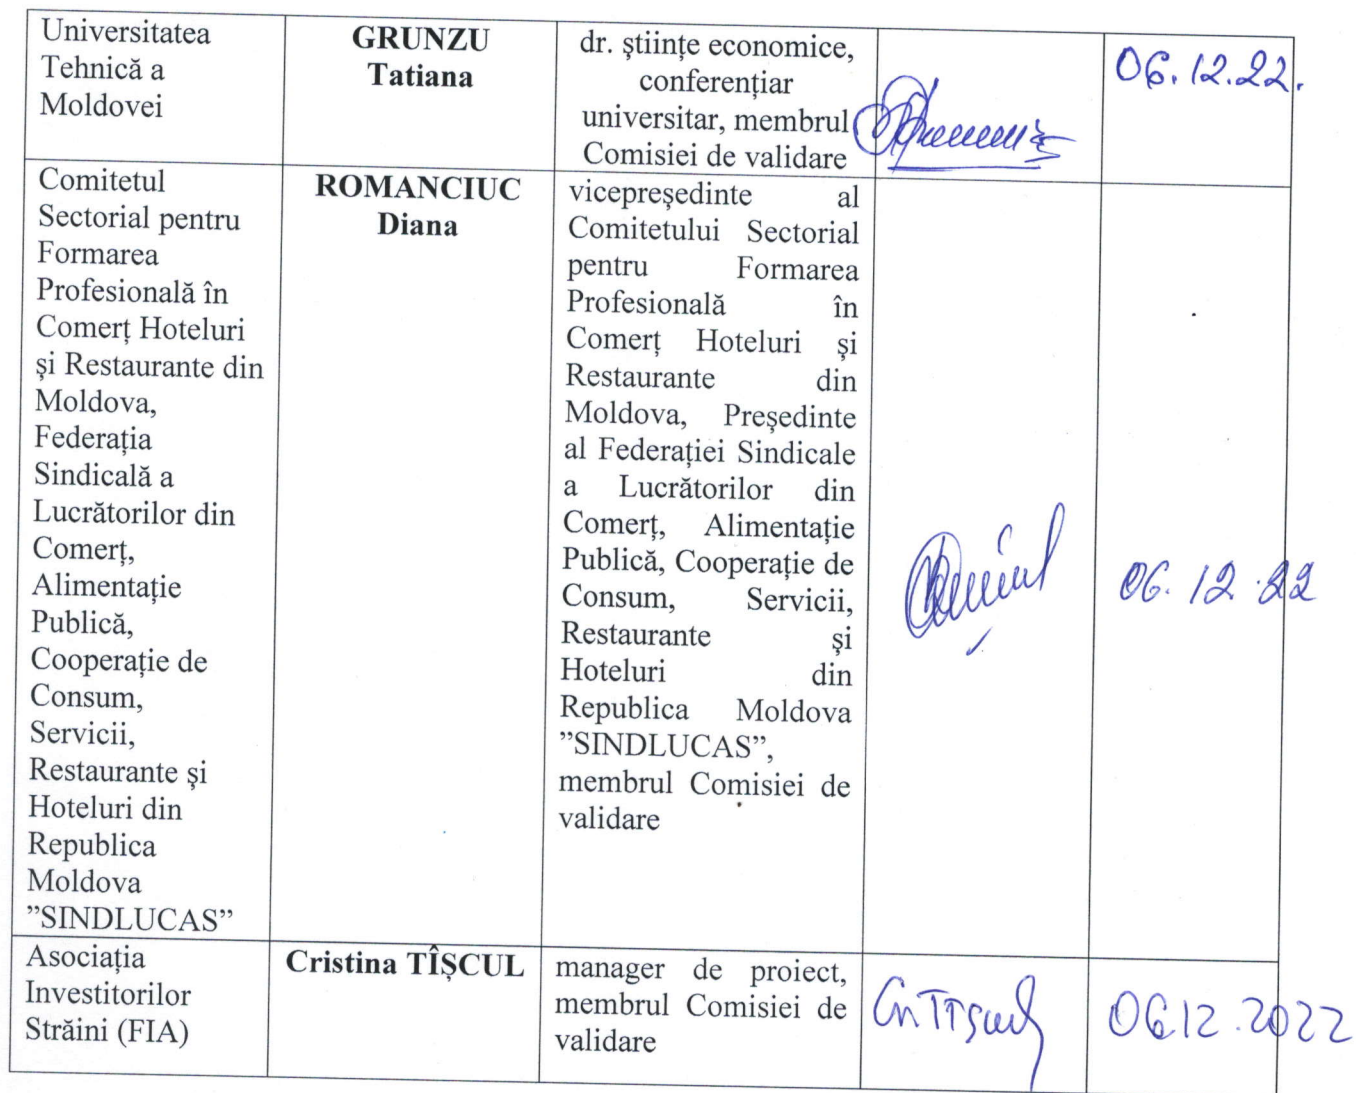 Universitatea
Tehnică a
Moldovei
GRUNZU
Tatiana
dr. științe economice,
conferențiar
universitar, membrul
Comisiei de validare
06.12.22.
Comitetul
Sectorial pentru
Formarea
Profesională în
Comerț Hoteluri
și Restaurante din
Moldova,
Federația
Sindicală a
Lucrătorilor din
Comerț,
Alimentație
Publică,
Cooperație de
Consum,
Servicii,
Restaurante și
Hoteluri din
Republica
Moldova
”SINDLUCAS”
ROMANCIUC
Diana
vicepreședinte al
Comitetului Sectorial
pentru Formarea
Profesională în
Comerț Hoteluri și
Restaurante din
Moldova, Președinte
al Federației Sindicale
a Lucrătorilor din
Comerț, Alimentație
Publică, Cooperație de
Consum, Servicii,
Restaurante și
Hoteluri din
Republica Moldova
”SINDLUCAS”,
membrul Comisiei de
validare
06.12.22
Asociația
Investitorilor
Străini (FIA)
Cristina TÎȘCUL
manager de proiect,
membrul Comisiei de
validare
06.12.2022